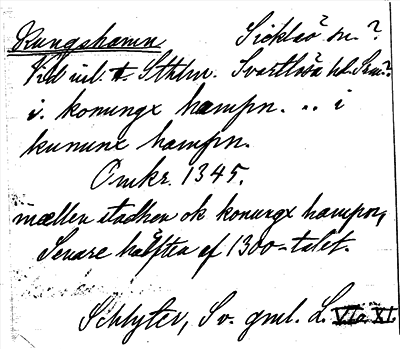 Kungshamn Sicklaö sn.?
Vid inl. t. Sthlm. Svartlösa hd. Srm?
i. konungx hampn. .. i
kununx hampn.
Omkr. 1345.
mællen stadhen ok konungx hampn,
Senare hälften af 1300-talet.
Schlyter, Sv. gml. L. VI o. XI.